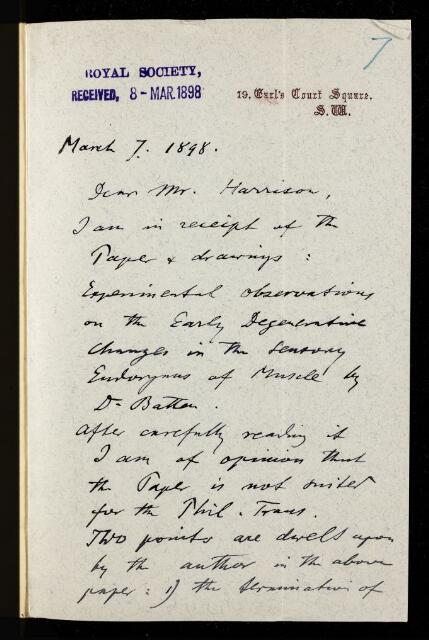 7
ROYAL SOCIETY,
RECEIVED, 8-MAR.1898
19. Earl's Court Square.
S.W.
March 7. 1898.
Dear Mr. Harrison,
I am in receipt of the
Paper & drawings :
Experimental observations
on the Early Degenerative
changes in the Sensory
Endorgans of Muscle by
Dr Batten.
After carefully reading it
I am of opinion that
the Paper is not suited
for the Phil. Trans.
Two points are dwelt upon
by the author in the above
paper : 1) the termination of